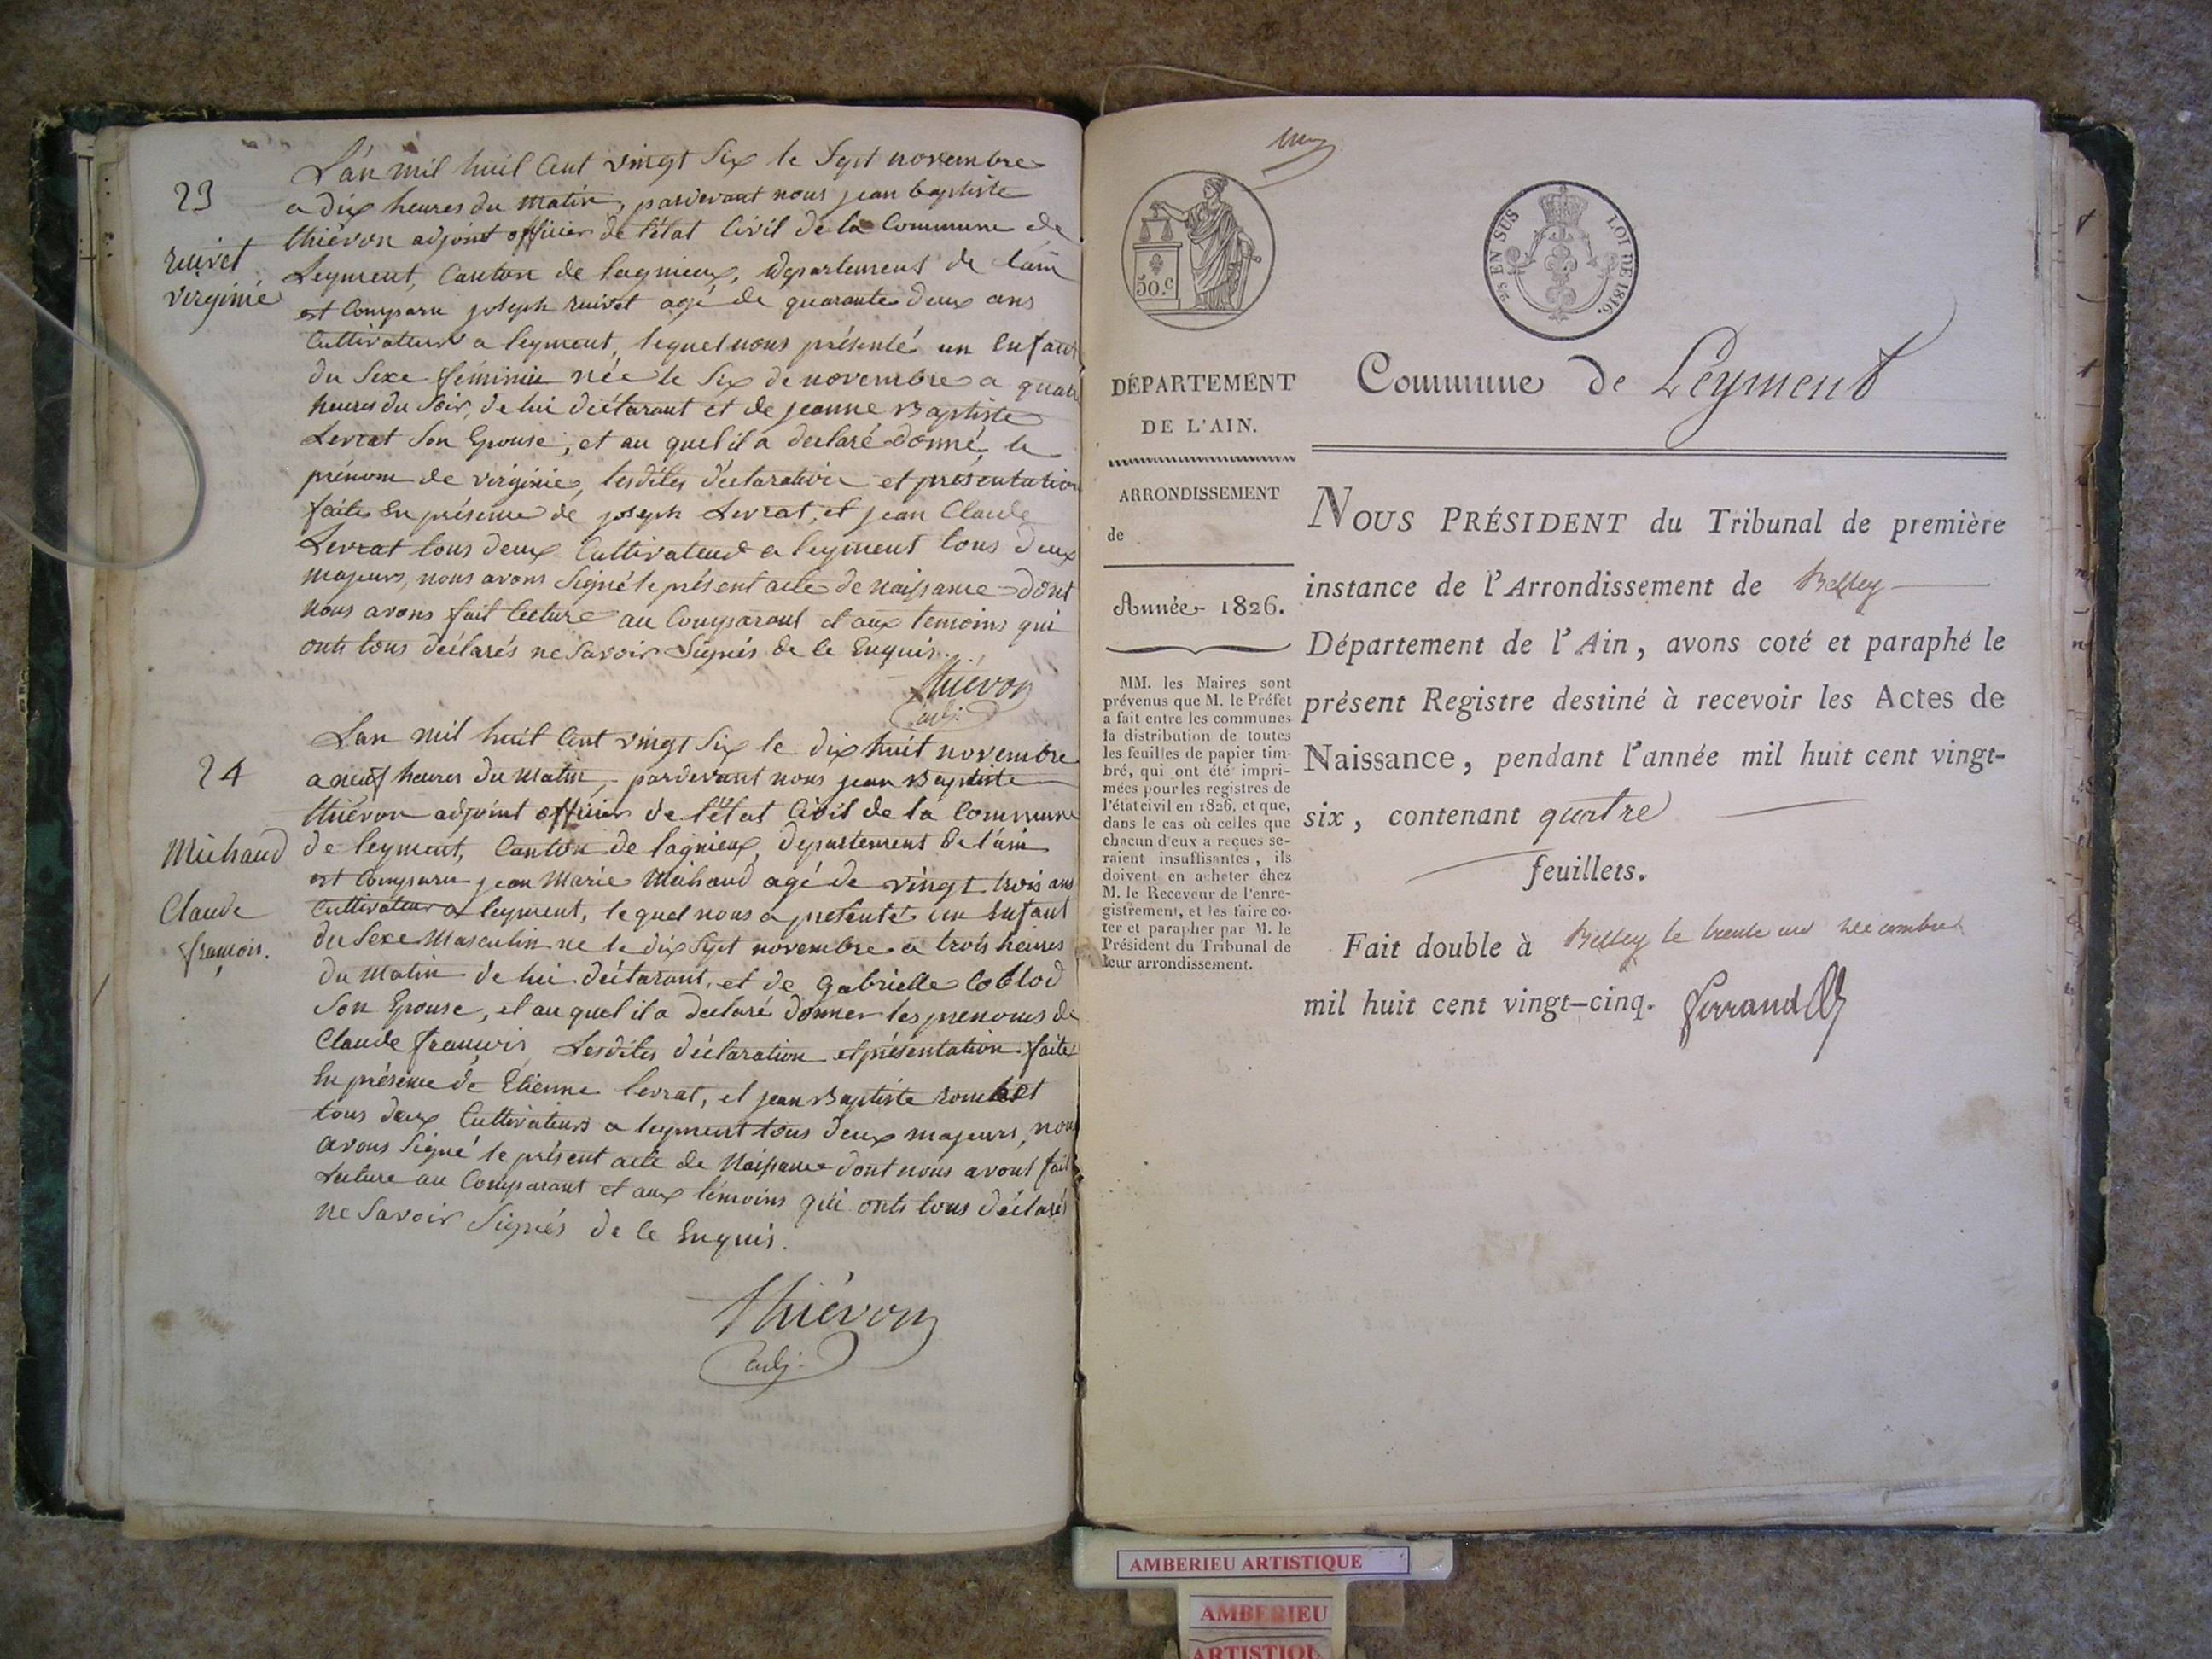 23
ruivet
virginie
L'an mil huit Cent vingt Six le Sept novembre
a dix heures du matin, pardevant nous jean baptiste
thiévon adjoint officier de l'état Civil de la Commune de
Leyment, Canton de lagnieux, département de l'ain
est Comparu joseph ruivet agé de quarante deux ans
Cultivateur a leyment, lequel nous présenté un Enfant
du Sexe féminin née le Six de novembre a quatre
heures du Soir, de lui déclarant et de jeanne Baptiste
Levrat Son Epouse, et au quel il a declaré donné le
prénom de virginie, lesdites déclaration et présentation
faite En présence de joseph Levrat, et jean Claude
Levrat tous deux Cultivateurs a leyment tous deux
majeurs, nous avons Signé le présent acte de naissance dont
nous avons fait lecture au Comparant et aux temoins qui
onts tous déclarés ne Savoir Signés de ce Enquis.
thiévon
adj.
24
Michaud
Claude
françois.
L'an mil huit Cent vingt Six le dix huit novembre
a neuf heures du matin, pardevant nous jean Baptiste
thiévon adjoint officier de l'état Civil de la Commune
de leyment, Canton de lagnieux, département de l'ain
est Comparu jean Marie Michaud agé de vingt trois ans
Cultivateur a leyment, lequel nous a présenté un Enfant
du Sexe Masculin né le dix Sept novembre a trois heures
du Matin de lui déclarant, et de gabrielle Coblod
Son Epouse, et au quel il a declaré donner les prenoms de
Claude françois Lesdites déclaration et présentation faite
En présence de Etienne levrat, et jean Baptiste rombet
tous deux Cultivateurs a leyment tous deux majeurs, nous
avons Signé le présent acte de Naissance dont nous avons fait
Lecture au Comparant et aux témoins qui onts tous déclarés
ne Savoir Signés de ce Enquis.
thiévon
adj.
50.c
25 EN SUS LOI DE 1816.
DÉPARTEMENT
DE L'AIN.
ARRONDISSEMENT
de
Année 1826.
MM. les Maires sont
prévenus que M. le Préfet
a fait entre les communes
la distribution de toutes
les feuilles de papier tim-
bré, qui ont été impri-
mées pour les registres de
l'état civil en 1826, et que,
dans le cas où celles que
chacun d'eux a reçues se-
raient insuffisantes, ils
doivent en acheter chez
M. le Receveur de l'enre-
gistrement, et les faire co-
ter et parapher par M. le
Président du Tribunal de
leur arrondissement.
Commune de Leyment
NOUS PRÉSIDENT du Tribunal de première
instance de l'Arrondissement de Belley
Département de l'Ain, avons coté et paraphé le
présent Registre destiné à recevoir les Actes de
Naissance, pendant l'année mil huit cent vingt-
six, contenant quatre
feuillets.
Fait double à Belley le trente un décembre
mil huit cent vingt-cinq. ferrand
AMBERIEU ARTISTIQUE
AMBERIEU
ARTISTIQU